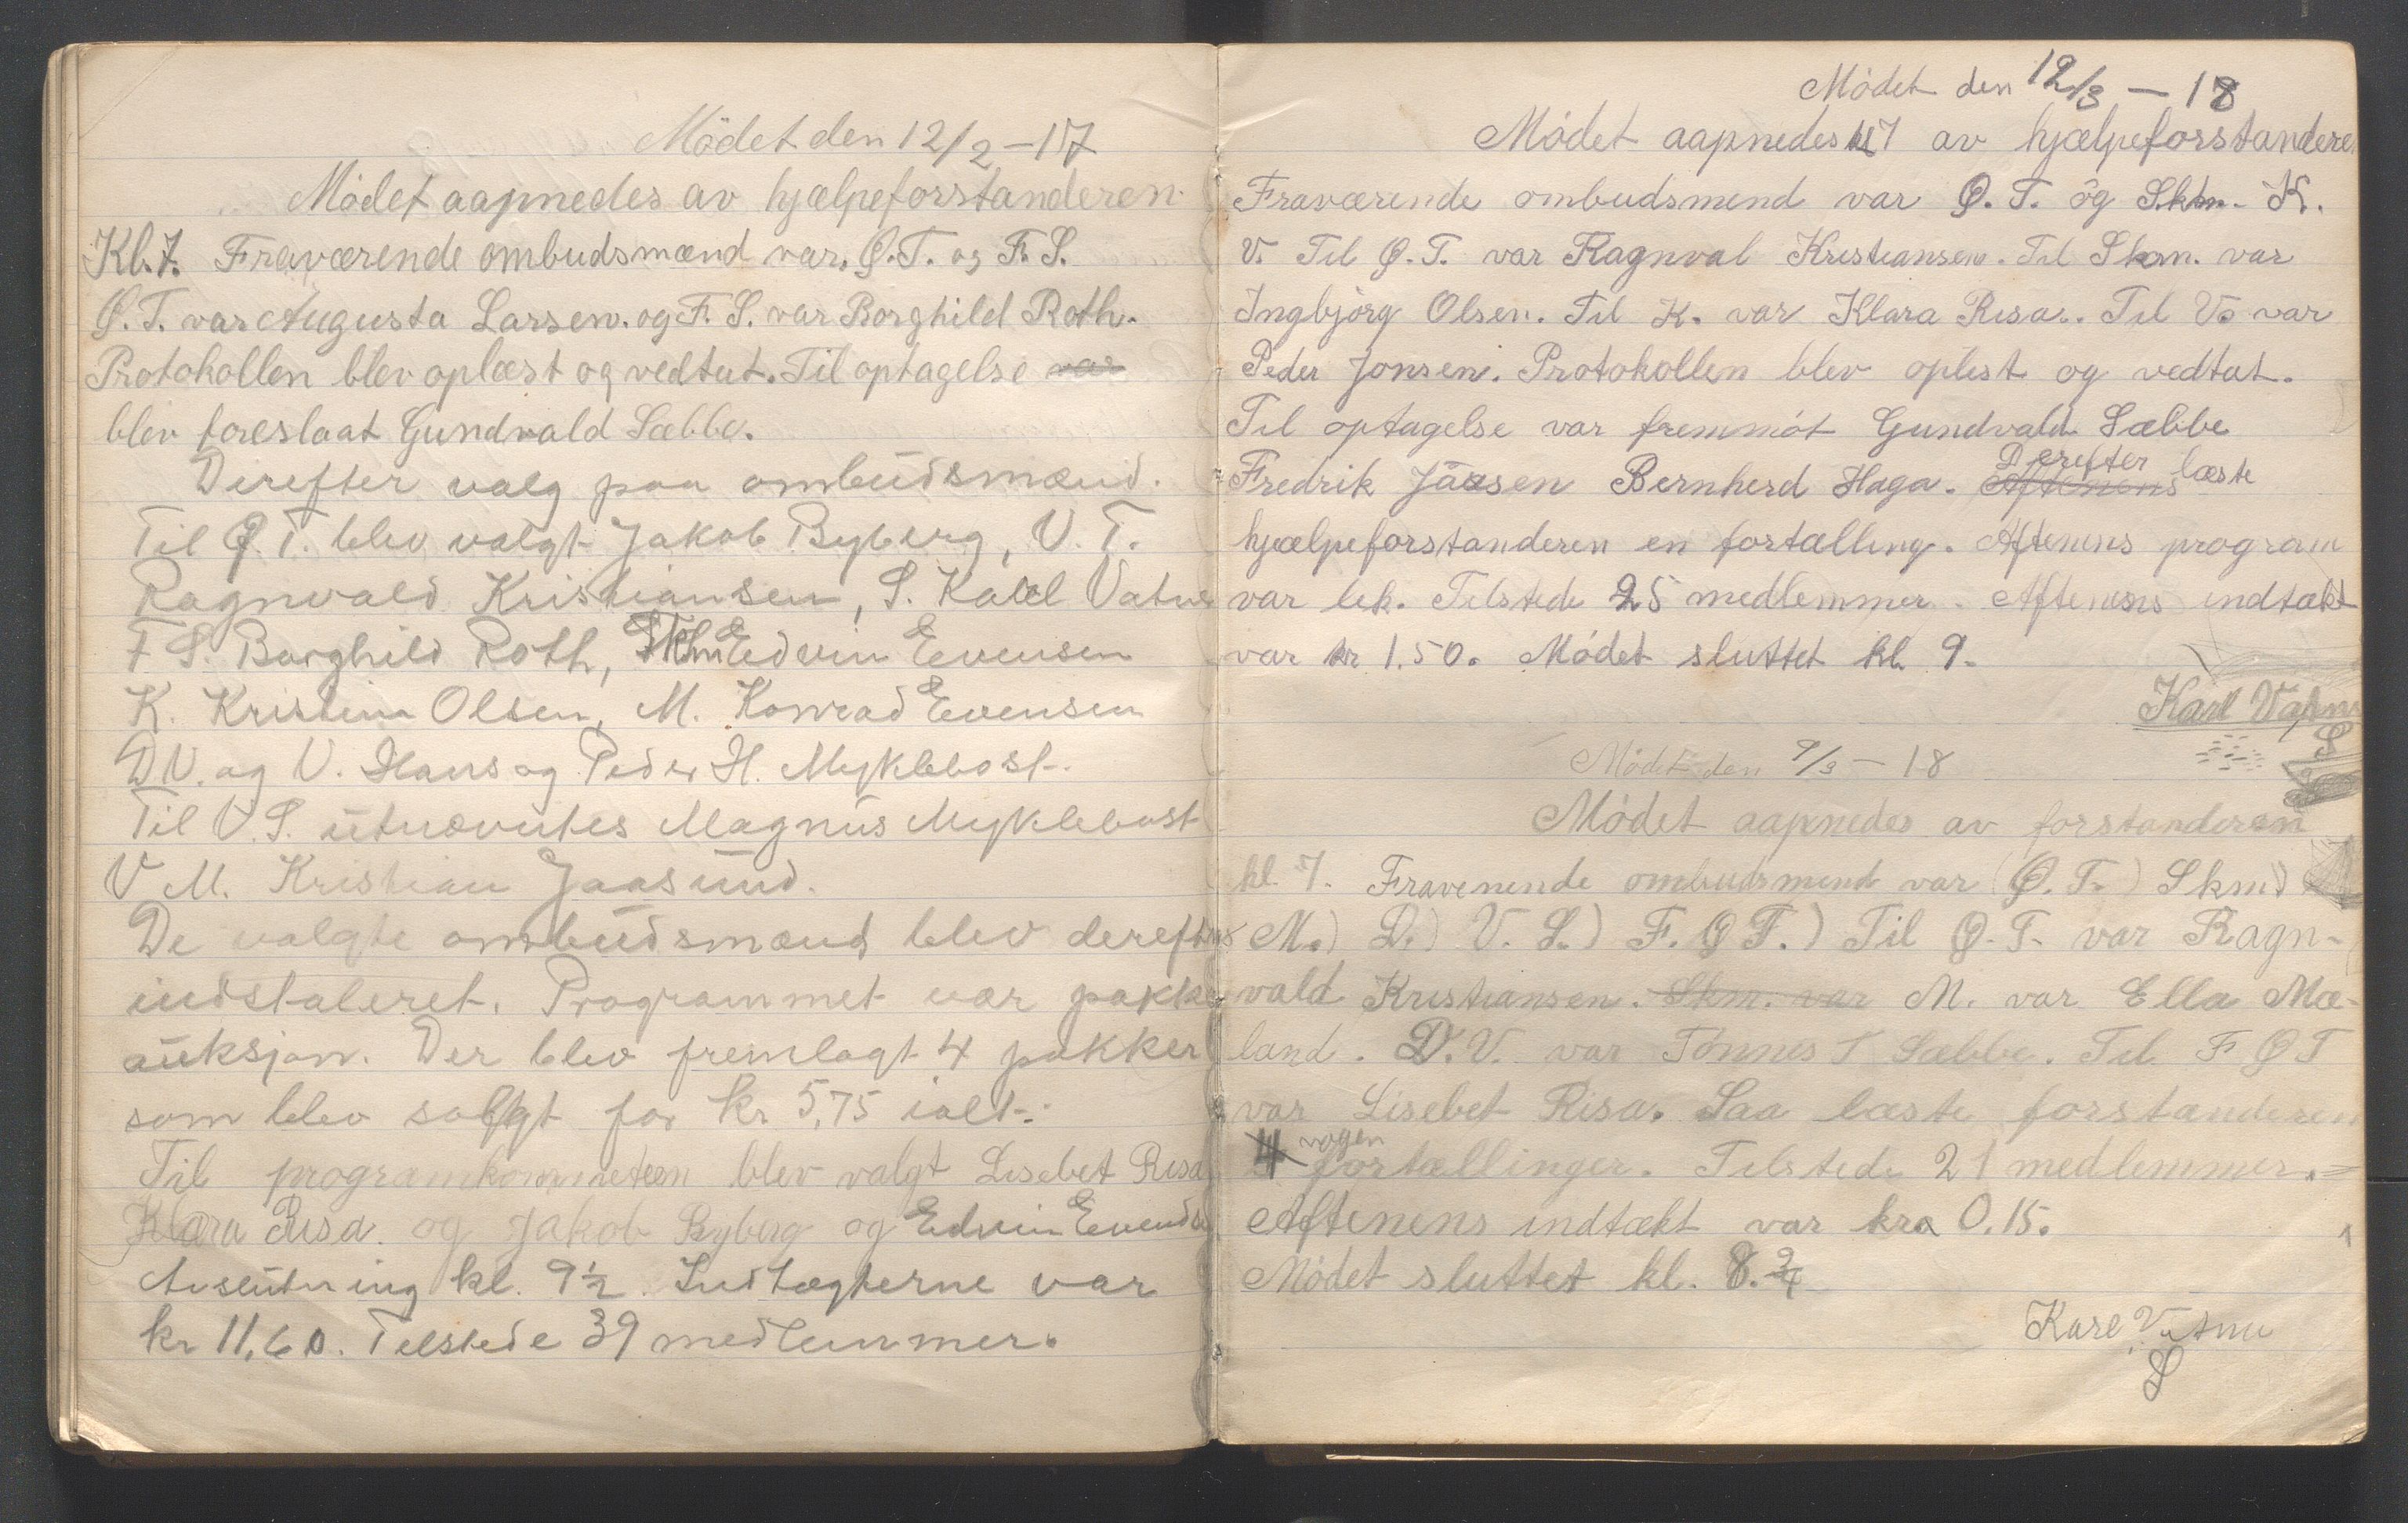 Mödet den 12/2 – 17
Mödet aapnedes av hjælpeforstanderen
Kl. 7. Fraværende ombudsmænd var. Ø.T. og F. S.
Ø. T. var Augusta Larsen. og F. S. var Borghild Roth.
Protokollen blev oplæst og vedtat. Til optagelse var
blev foreslaat Gundvald Sæbbe.
Direfter valg paa ombudsmænd.
Til Ø. T. blev valgt Jakob Byberg, V. T.
Ragnvald Kristiansen, S. Karl Vatne
F S. Borghild Roth, Skm Edvin Evensen
K. Kristine Olsen, M. Konrad Evensen
D V. og V. Hans og Peder H. Myklebost.
Til V. S. utnævntes Magnus Myklebust
V M. Kristian Jaasund.
De valgte ombudsmænd blev derefter
indstaleret. Programmet var pakke
auksjon. Der blev fremlagt 4 pakker
som blev solgt for kr 5,75 ialt.
Til programkommeteen blev valgt Lisebet Risa
Klara Risa. og Jakob Byberg og Edvin Evensen
Avslutning kl. 9½. Indtægterne var
kr 11,60. Telstede 39 medlemmer.
Mödet den 12/3 – 18
Mödet aapnedes kl 7 av hjælpeforstanderen
Fraværende ombudsmend var Ø. T. og Skm. K.
V. Til Ø. T. var Ragnval Kristiansen. Til Skm. var
Ingbjörg Olsen. Til K. var Klara Risa. Til V. var
Peder Jonsen. Protokollen blev oplest og vedtat.
Til optagelse var fremmöt Gundvald Sæbbe
Fredrik Jåsen Bernherd Haga. Aftenens Derefter læste
hjælpeforstanderen en fortælling. Aftenens program
var lek. Telstede 25 medlemmer. Aftenens indtækt
var kr 1.50. Mödet sluttet kl. 9.
Karl Vatne
S
Mödet den 9/3 – 18
Mödet aapnedes av forstanderen
kl. 7. Fravenende ombudsmend var (Ø. T.) Skm)
M.) D.) V. S.) F. Ø T.) Til Ø. T. var Ragn-
vald Kristiansen. Skm. var M. var Ella Mæ-
land. D. V. var Tönnes T Sæbbe. Til F Ø T
var Lisebet Risa. Saa læste forstanderen
4 nogen fortællinger. Telstede 21 medlemmer.
Aftenens indtækt var kr 0.15.
Mödet sluttet kl. 8.¾
Karl Vatne
S